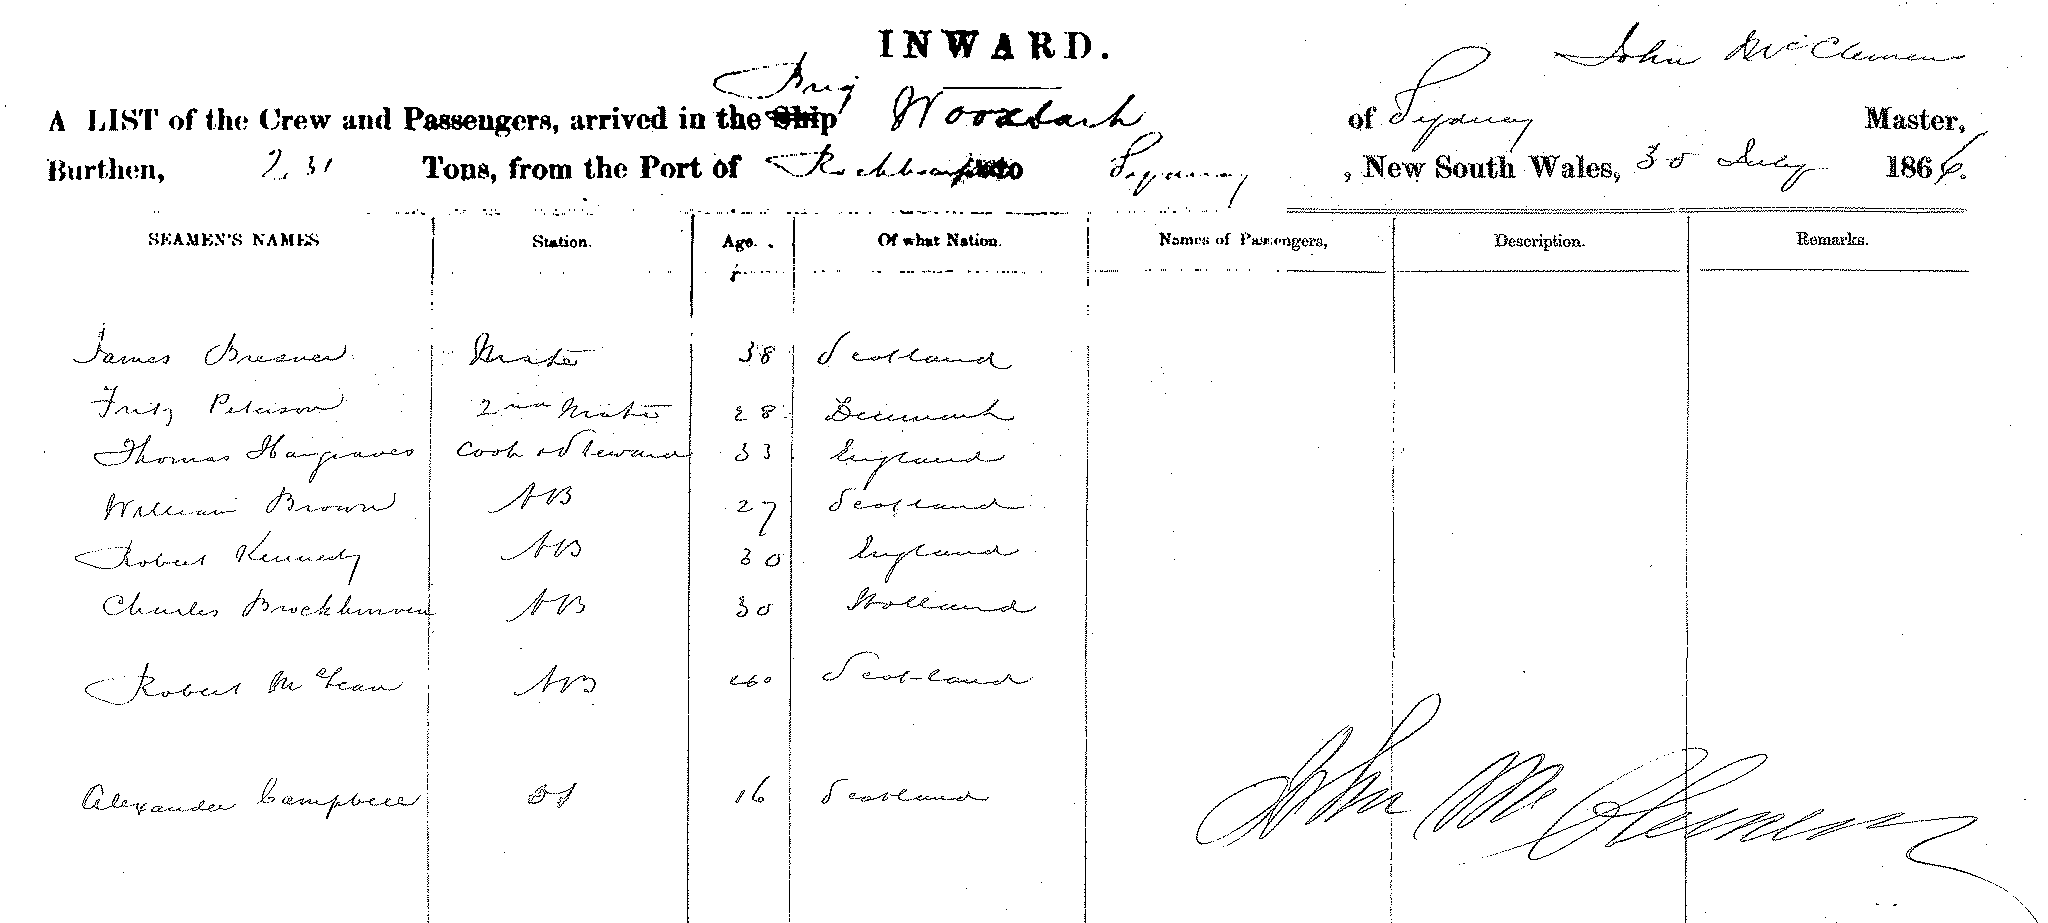 INWARD.
John McClemens
Brig
A LIST of the Crew and Passengers, arrived in the Ship Woodlark of Sydney Master,
Burthen, 231 Tons, from the Port of Rockhampton to Sydney, New South Wales, 30 July 1866.
SEAMEN'S NAMES Station. Age. Of what Nation. Names of Passengers, Description. Remarks.
James Mate 38 Scotland
Fritz Peterson 2nd Mate 28 Denmark
Thomas Hargraves Cook & Steward 33 England
William Brown AB 27 Scotland
Robert Kennedy AB 30 England
Charles AB 30 Holland
Robert McLean AB Scotland
Alexander Campbell OS 16 Scotland
John McClemens